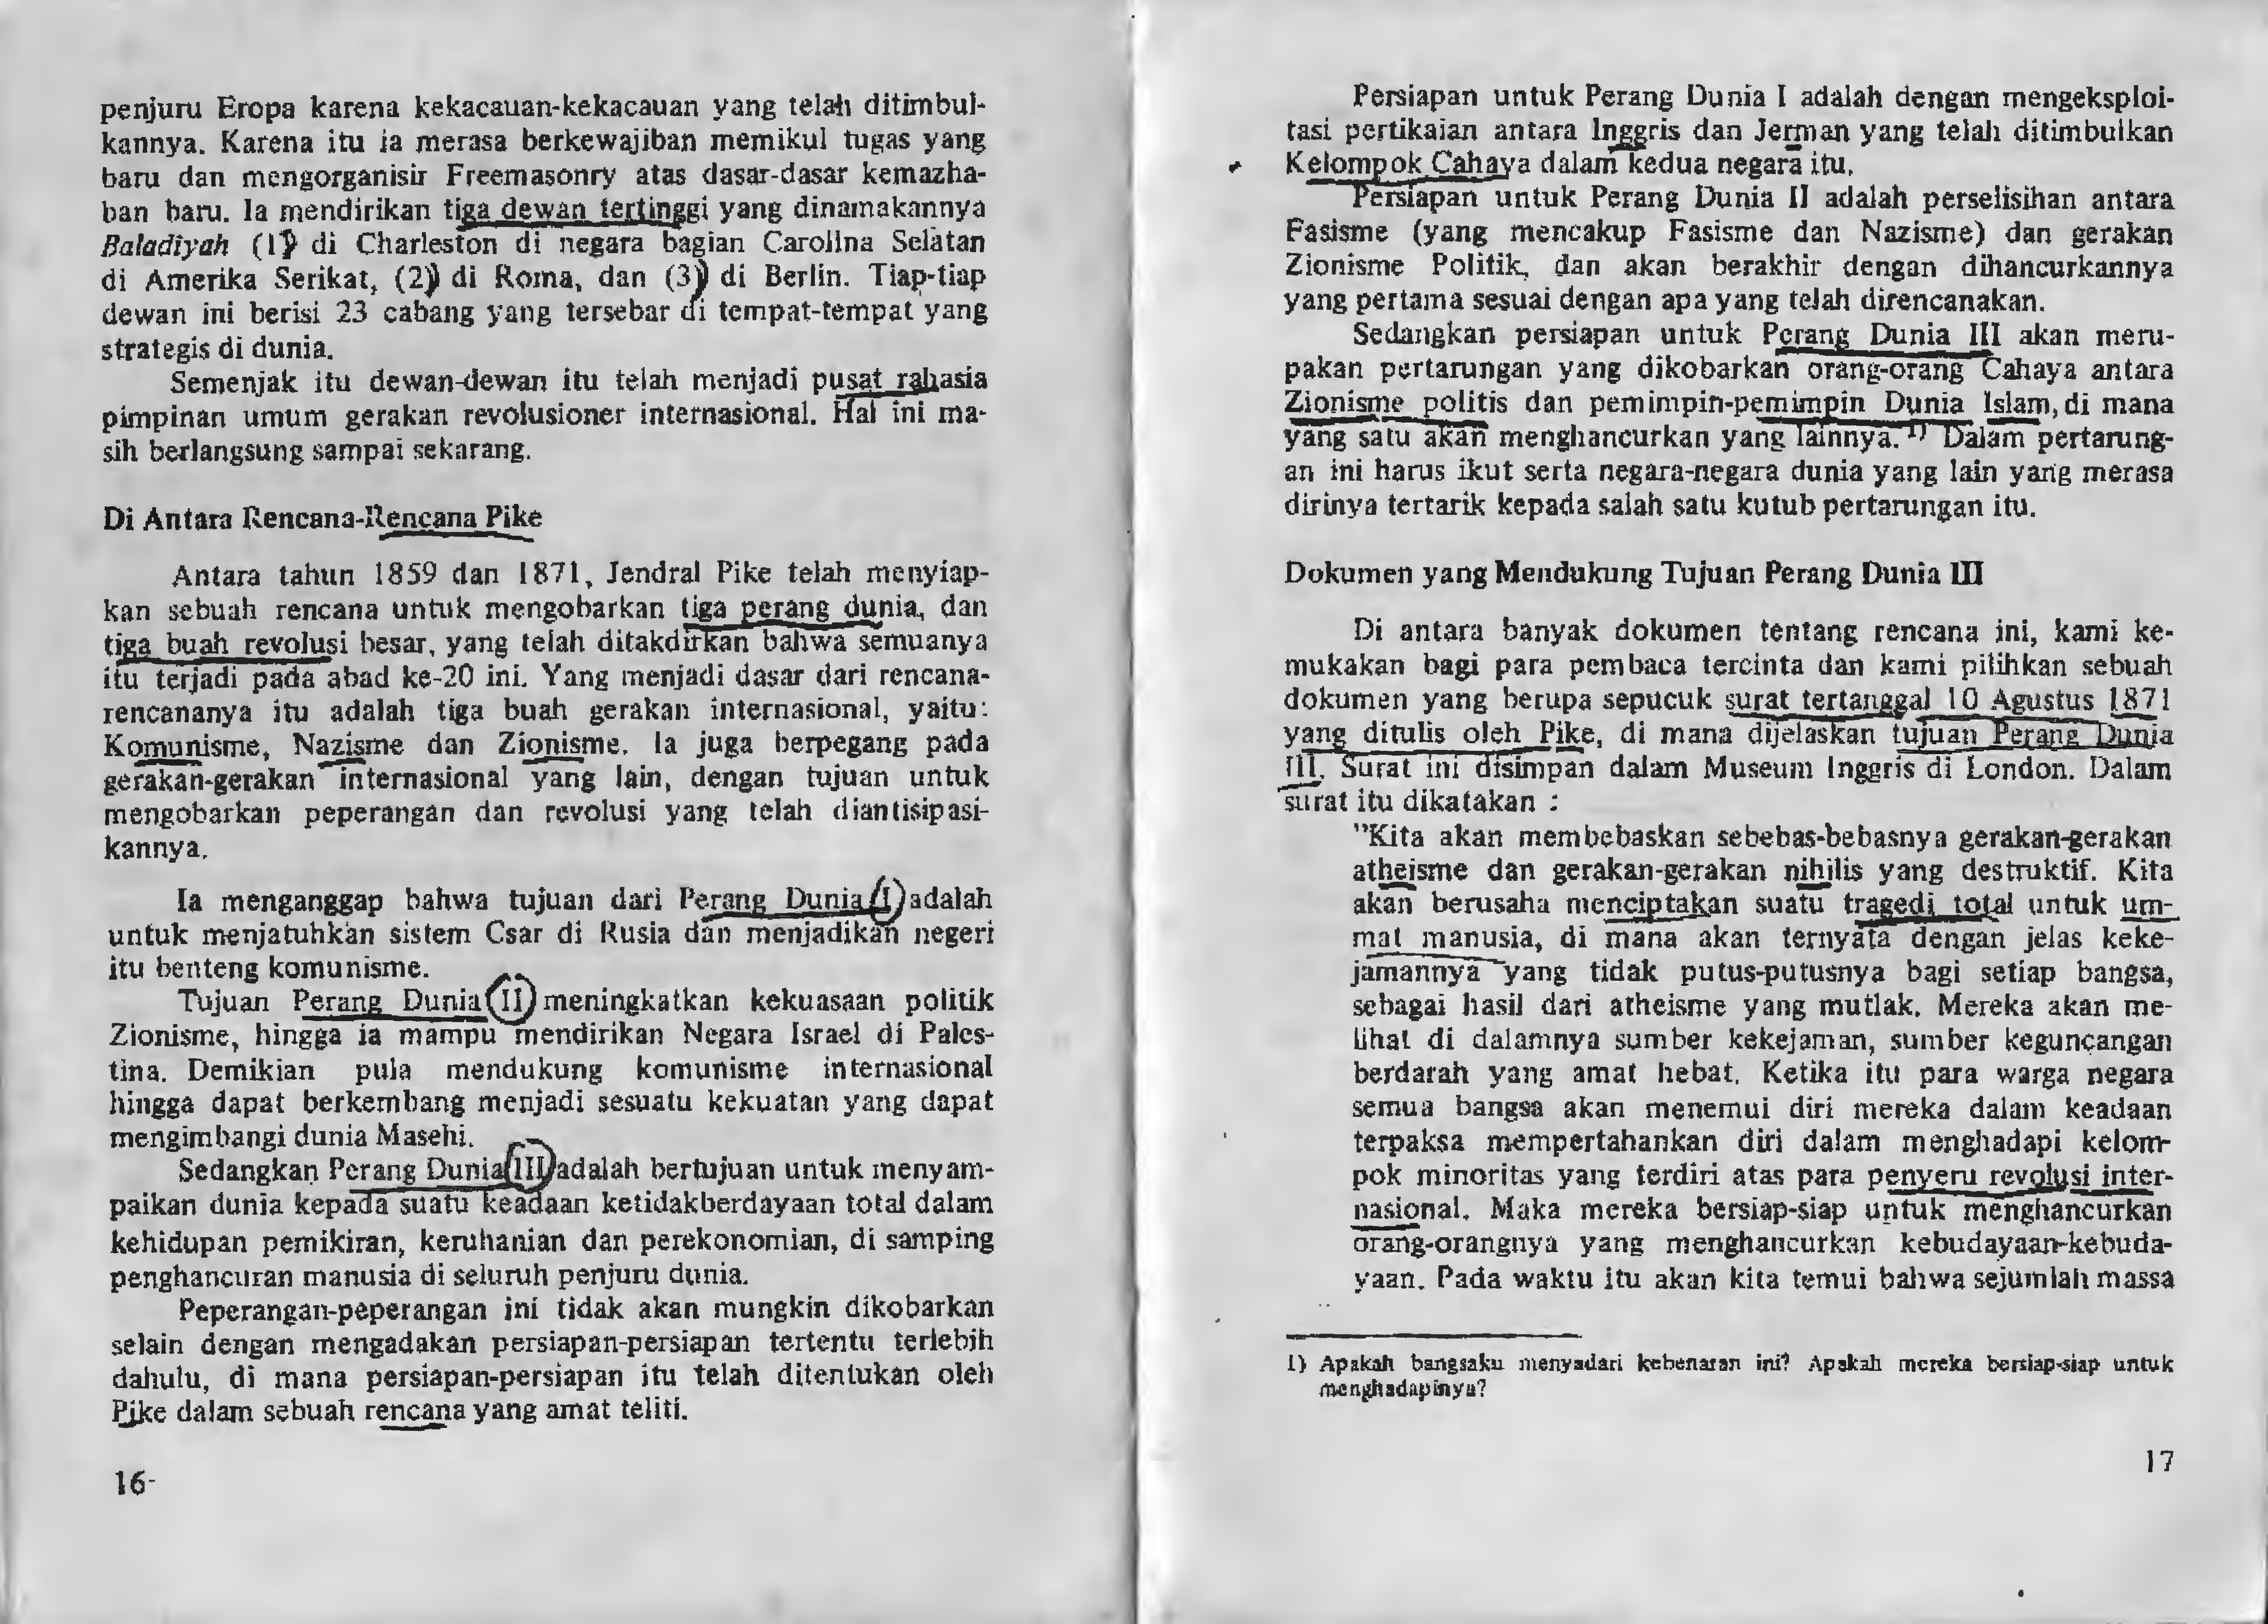 penjuru Eropa karena kekacauan-kekacauan yang telah ditimbul-
kannya. Karena itu ia merasa berkewajiban memikul tugas yang
baru dan mengorganisir Freemasonry atas dasar-dasar kemazha-
ban baru. Ia mendirikan tiga dewan tertinggi yang dinamakannya
Baladiyah (1) di Charleston di negara bagian Carolina Selatan
di Amerika Serikat, (2) di Roma, dan (3) di Berlin. Tiap-tiap
dewan ini berisi 23 cabang yang tersebar di tempat-tempat yang
strategis di dunia.
Semenjak itu dewan-dewan itu telah menjadi pusat rahasia
pimpinan umum gerakan revolusioner internasional. Hal ini ma-
sih berlangsung sampai sekarang.
Di Antara Rencana-Rencana Pike
Antara tahun 1859 dan 1871, Jendral Pike telah menyiap-
kan sebuah rencana untuk mengobarkan tiga perang dunia, dan
tiga buah revolusi besar, yang telah ditakdirkan bahwa semuanya
itu terjadi pada abad ke-20 ini. Yang menjadi dasar dari rencana-
rencananya itu adalah tiga buah gerakan internasional, yaitu:
Komunisme, Nazisme dan Zionisme. Ia juga berpegang pada
gerakan-gerakan internasional yang lain, dengan tujuan untuk
mengobarkan peperangan dan revolusi yang telah diantisipasi-
kannya.
Ia menganggap bahwa tujuan dari Perang Dunia I adalah
untuk menjatuhkan sistem Csar di Rusia dan menjadikan negeri
itu benteng komunisme.
Tujuan Perang Dunia II meningkatkan kekuasaan politik
Zionisme, hingga ia mampu mendirikan Negara Israel di Pales-
tina. Demikian pula mendukung komunisme internasional
hingga dapat berkembang menjadi sesuatu kekuatan yang dapat
mengimbangi dunia Masehi.
Sedangkan Perang Dunia III adalah bertujuan untuk menyam-
paikan dunia kepada suatu keadaan ketidakberdayaan total dalam
kehidupan pemikiran, keruhanian dan perekonomian, di samping
penghancuran manusia di seluruh penjuru dunia.
Peperangan-peperangan ini tidak akan mungkin dikobarkan
selain dengan mengadakan persiapan-persiapan tertentu terlebih
dahulu, di mana persiapan-persiapan itu telah ditentukan oleh
Pike dalam sebuah rencana yang amat teliti.
16-
Persiapan untuk Perang Dunia I adalah dengan mengeksploi-
tasi pertikaian antara Inggris dan Jerman yang telah ditimbulkan
Kelompok Cahaya dalam kedua negara itu.
Persiapan untuk Perang Dunia II adalah perselisihan antara
Fasisme (yang mencakup Fasisme dan Nazisme) dan gerakan
Zionisme Politik, dan akan berakhir dengan dihancurkannya
yang pertama sesuai dengan apa yang telah direncanakan.
Sedangkan persiapan untuk Perang Dunia III akan meru-
pakan pertarungan yang dikobarkan orang-orang Cahaya antara
Zionisme politis dan pemimpin-pemimpin Dunia Islam, di mana
yang satu akan menghancurkan yang lainnya. 1) Dalam pertarung-
an ini harus ikut serta negara-negara dunia yang lain yang merasa
dirinya tertarik kepada salah satu kutub pertarungan itu.
Dokumen yang Mendukung Tujuan Perang Dunia III
Di antara banyak dokumen tentang rencana ini, kami ke-
mukakan bagi para pembaca tercinta dan kami pilihkan sebuah
dokumen yang berupa sepucuk surat tertanggal 10 Agustus 1871
yang ditulis oleh Pike, di mana dijelaskan tujuan Perang Dunia
III. Surat ini disimpan dalam Museum Inggris di London. Dalam
surat itu dikatakan :
"Kita akan membebaskan sebebas-bebasnya gerakan-gerakan
atheisme dan gerakan-gerakan nihilis yang destruktif. Kita
akan berusaha menciptakan suatu tragedi total untuk um-
mat manusia, di mana akan ternyata dengan jelas keke-
jamannya yang tidak putus-putusnya bagi setiap bangsa,
sebagai hasil dari atheisme yang mutlak. Mereka akan me-
lihat di dalamnya sumber kekejaman, sumber keguncangan
berdarah yang amat hebat. Ketika itu para warga negara
semua bangsa akan menemui diri mereka dalam keadaan
terpaksa mempertahankan diri dalam menghadapi kelom-
pok minoritas yang terdiri atas para penyeru revolusi inter-
nasional. Maka mereka bersiap-siap untuk menghancurkan
orang-orangnya yang menghancurkan kebudayaan-kebuda-
yaan. Pada waktu itu akan kita temui bahwa sejumlah massa
1) Apakah bangsaku menyadari kebenaran ini? Apakah mereka bersiap-siap untuk
menghadapinya?
17